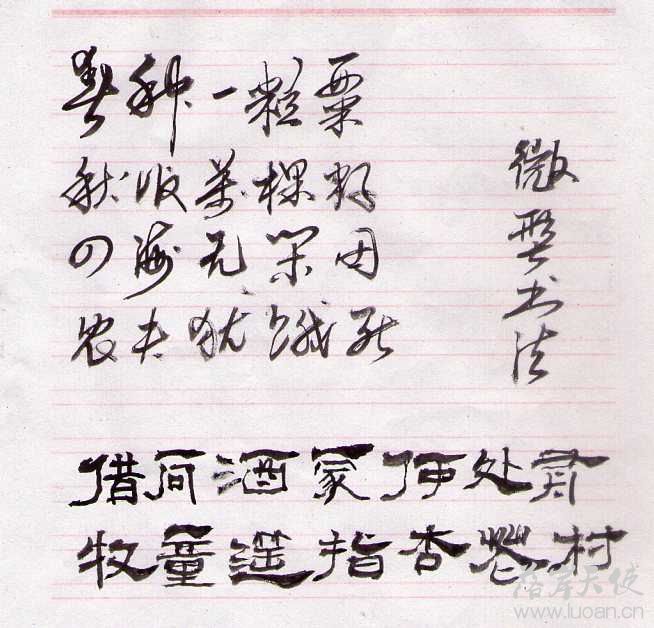 春种一粒粟
秋收萬棵籽
四海无闲田
农夫犹饿死
微型书法
借问酒家何处有
牧童遥指杏花村
落岸天使
www.luoan.cn